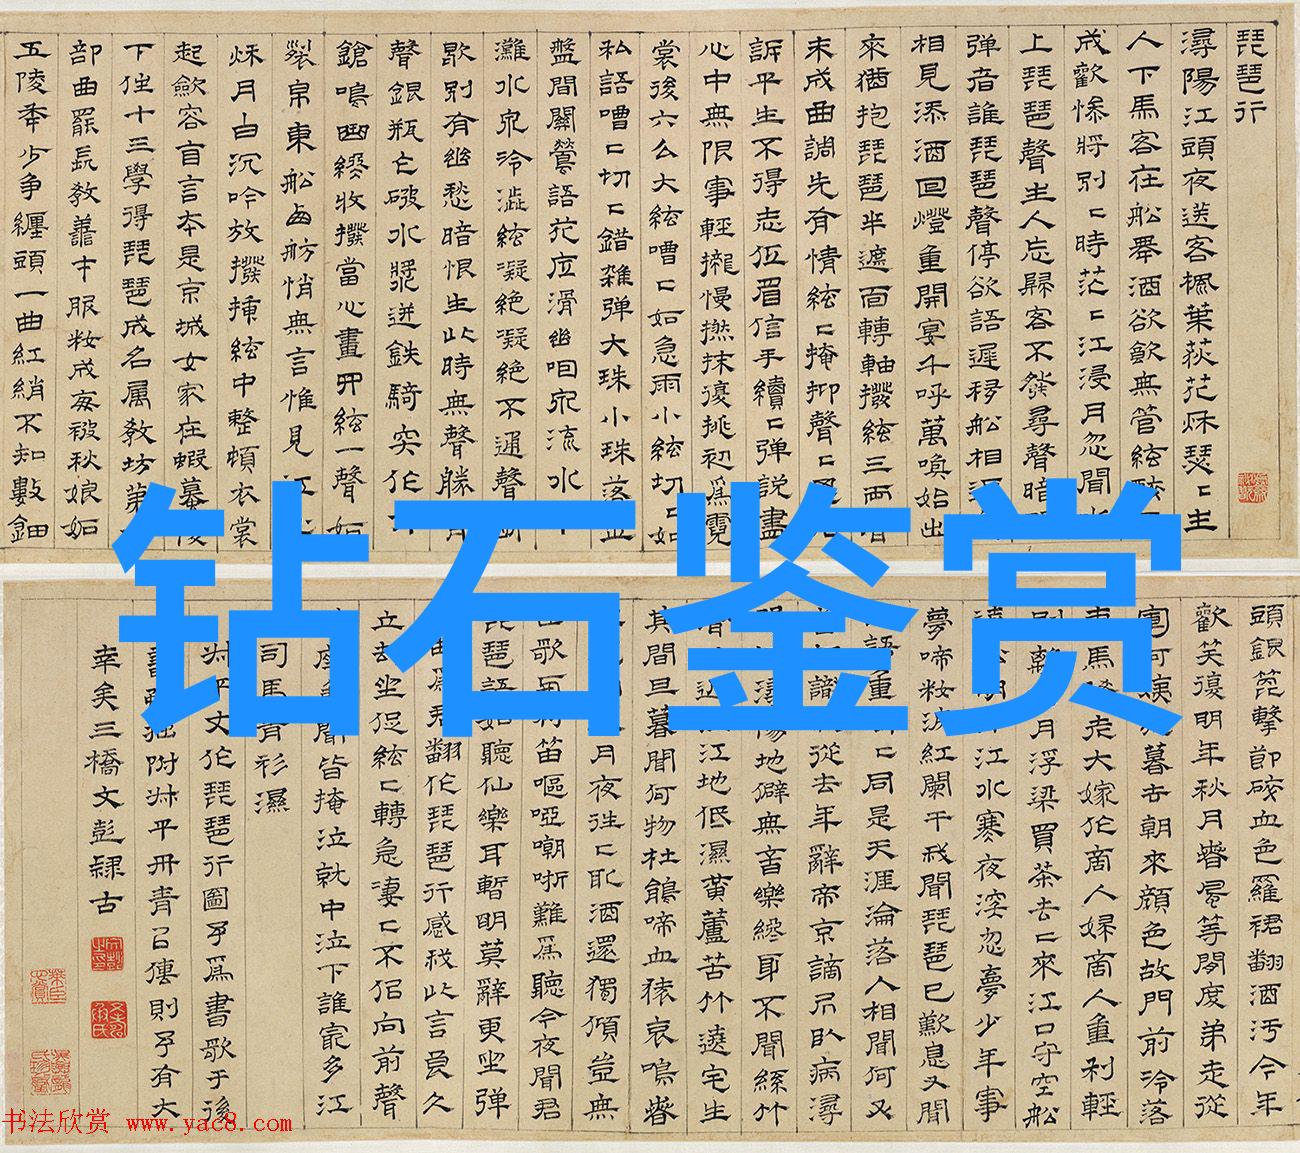 琵琶行
潯陽江頭夜送客楓葉荻花秌瑟〻主
人下馬客在船舉酒欲飲無管絃醉
成歡慘將別〻時茫〻江浸月忽聞水
上琵琶聲主人忘歸客不發尋聲暗
彈者誰琵琶聲停欲語遲移船相
相見添酒回燈重開宴千呼萬喚始出
來猶抱琵琶半遮面轉軸撥絃三兩
未成曲調先有情絃〻掩抑聲〻
訴平生不得志低眉信手續〻彈說盡
心中無限事輕攏慢撚抹復挑初爲霓
裳後六么大絃嘈〻如急雨小絃切〻如
私語嘈〻切〻錯雜彈大珠小珠落玉
盤間關鶯語花底滑幽咽泉流水
灘水泉冷澁絃凝絕凝絕不通聲
歇別有幽愁暗恨生此時無聲勝有
聲銀瓶乍破水漿迸鉄騎突作
鎗鳴曲終收撥當心畫四絃一聲如
裂帛東船西舫悄無言惟見江
秌月白沉吟放撥插絃中整頓衣裳
起斂容自言本是京城女家在蝦蟇陵
下住十三學得琵琶成名属教坊第
部曲罷長教善才服妝成每被秋娘妬
五陵年少争纏頭一曲紅綃不知數鈿
钻石鉴赏
頭銀篦擊節破血色羅裙翻酒污今年
歡笑復明年秋月春風等閒度弟走從
軍阿姨暮去朝來顏色故門前冷落
車馬走大嫁作商人婦商人重利輕
別月浮梁買茶去〻來江口守空船
江水寒夜深忽夢少年事
夢啼妝淚紅闌干我聞琵琶已歎息又聞
語重〻同是天涯淪落人相聞何必
識從去年辭帝京謫居卧病潯
陽地僻無音樂終歲不聞絲竹
江地低濕黄蘆苦竹遶宅生
其間旦暮聞何物杜鵑啼血猿哀鳴春
月夜往〻取酒還獨傾豈無
歌笛嘔啞嘲哳難爲聽今夜聞君
琵琶語如聽仙樂耳暫明莫辭更坐彈
曲爲君翻作琵琶行感我此言良久
立却坐促絃〻轉急凄〻不似向前聲
座聞皆掩泣就中泣下誰寂多江
司馬青衫濕
叔平丈作琵琶行圖予爲書歌于後
書附叔平丹青召傳則予有大
幸矣三橋文彭隸古
书法欣赏 www.yac8.com